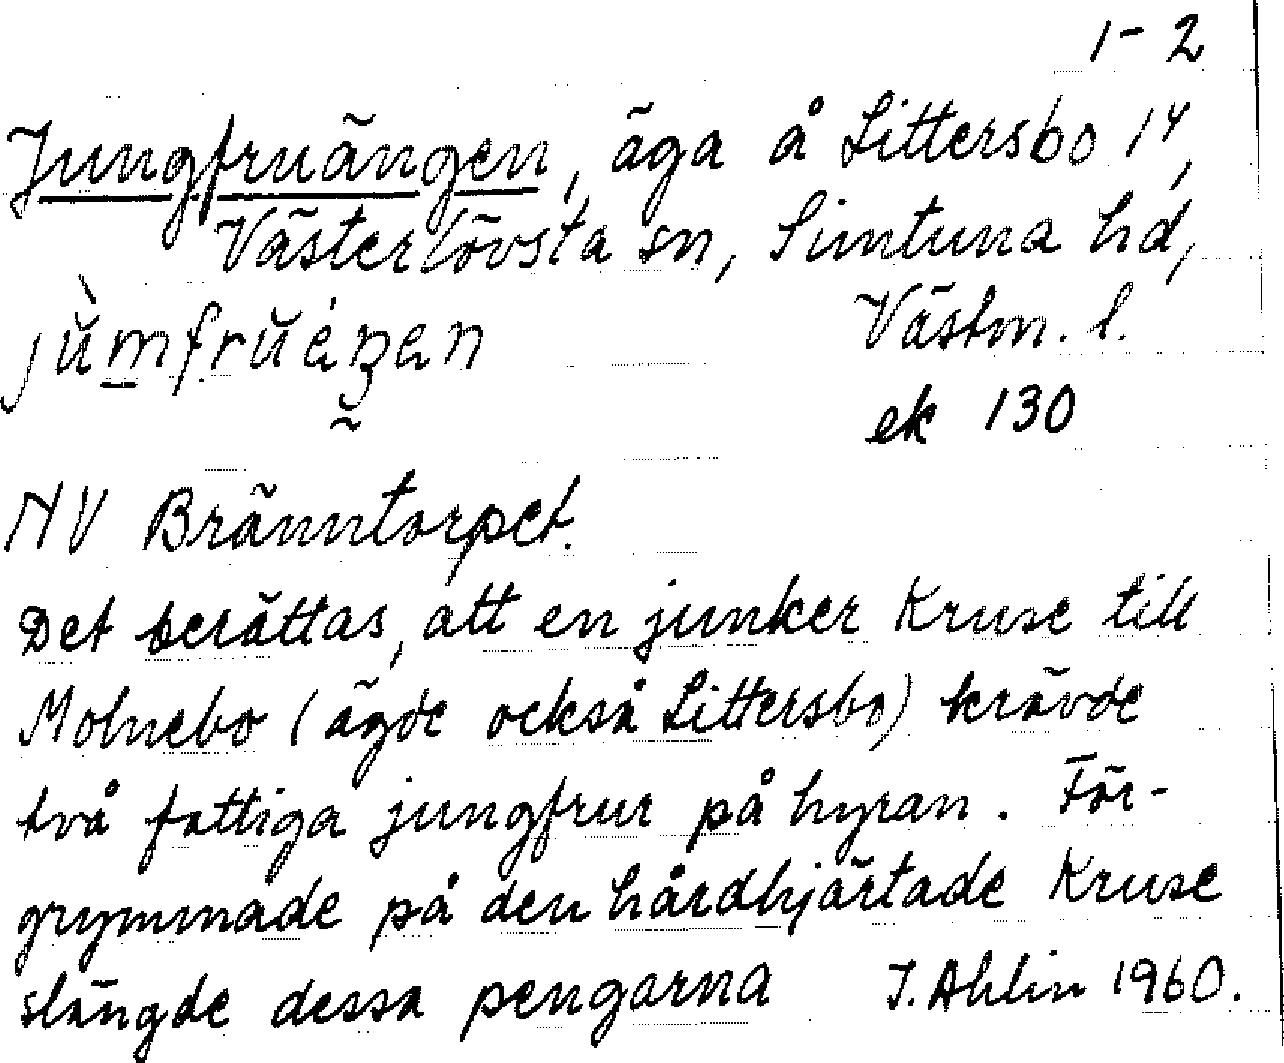 1-2
Jungfruängen, äga å Littersbo 1⁴,
Västerlövsta sn, Simtuna hd,
Västm. l.
ek 130
NV Bränntorpet.
Det berättas, att en junker Kruse till
Molnebo (ägde också Littersbo) krävde
två fattiga jungfrur på hyran. För-
grymmade på den hårdhjärtade Kruse
slängde dessa pengarna J. Ahlin 1960.